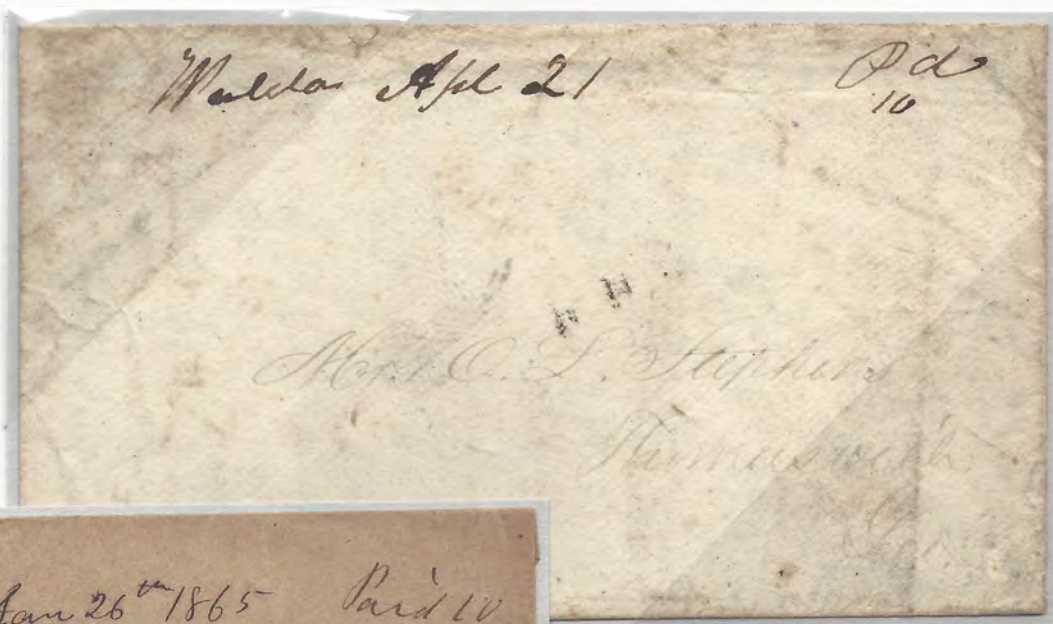 Waldo Apl 21 Pd
10
Mrs O. L. Stephens
Thomasville
Geo
Jan 26th 1865 Paid 10